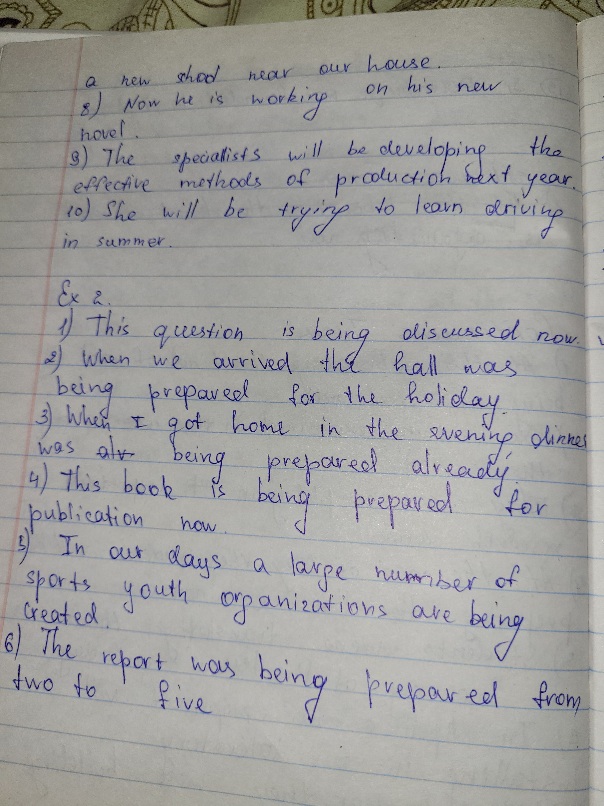 a new shod near our house.
8) Now he is working on his new
novel.
9) The speciallists will be developing the
effective methods of production next year.
10) She will be trying to learn driving
in summer.
Ex 2.
1) This question is being discussed now.
2) When we arrived the hall was
being prepared for the holiday.
3) When I got home in the evening, dinner
was being prepared already.
4) This book is being prepared for
publication now.
5) In our days a large number of
sports youth organizations are being
created.
6) The report was being prepared from
two to five